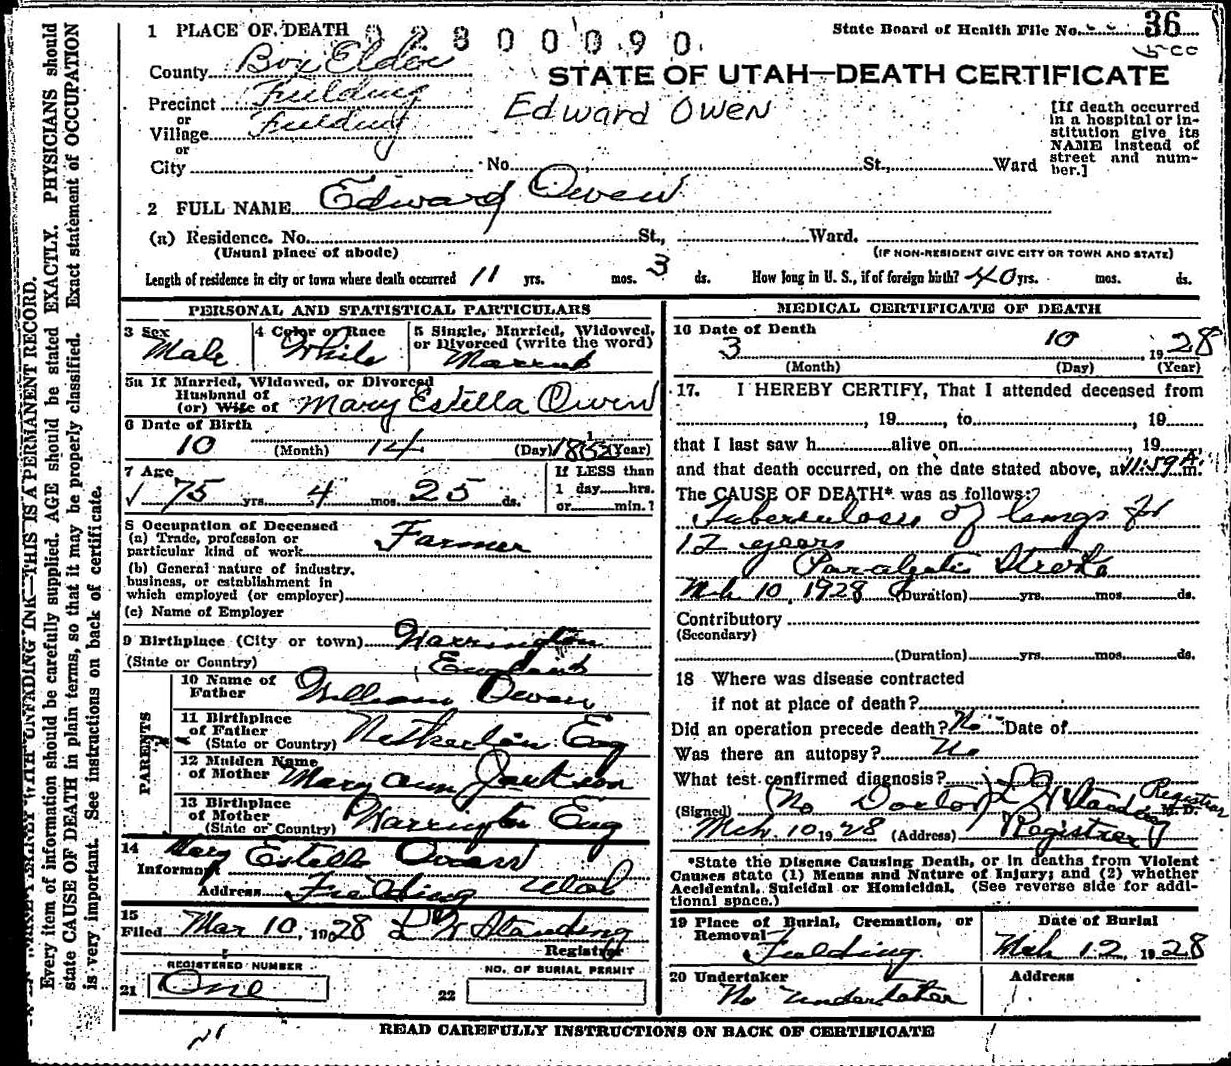 1 PLACE OF DEATH 92800090.
State Board of Health File No. 36
County Box Elder
STATE OF UTAH—DEATH CERTIFICATE
Precinct Fielding
or
Village Fielding
or
Edward Owen
[If death occurred
in a hospital or in-
stitution give its
NAME instead of
street and num-
ber.]
City No. St., Ward
2 FULL NAME Edward Owen
(a) Residence. No. St., Ward.
(Usual place of abode) (IF NON-RESIDENT GIVE CITY OR TOWN AND STATE)
Length of residence in city or town where death occurred 11 yrs. mos. 3 ds. How long in U. S., if of foreign birth? 40 yrs. mos. ds.
PERSONAL AND STATISTICAL PARTICULARS
3 Sex
Male
4 Color or Race
White
5 Single, Married, Widowed,
or Divorced (write the word)
Married
5a If Married, Widowed, or Divorced
Husband of
(or) Wife of Mary Estella Owen
6 Date of Birth
10 14 1852
(Month) (Day) (Year)
7 Age
75 yrs. 4 mos. 25 ds.
If LESS than
1 day hrs.
or min.?
8 Occupation of Deceased
(a) Trade, profession or
particular kind of work Farmer
(b) General nature of industry,
business, or establishment in
which employed (or employer)
(c) Name of Employer
9 Birthplace (City or town) Warrington
(State or Country) England
PARENTS
10 Name of
Father William Owen
11 Birthplace
of Father
(State or Country) Eng
12 Maiden Name
of Mother Mary Ann Jackson
13 Birthplace
of Mother
(State or Country) Warrington Eng
14
Informant Mary Estella Owen
Address Fielding Utah
15
Filed Mar 10, 1928 L W Standing
Registrar
REGISTERED NUMBER
21 One
NO. OF BURIAL PERMIT
22
MEDICAL CERTIFICATE OF DEATH
16 Date of Death
3 10, 1928
(Month) (Day) (Year)
17. I HEREBY CERTIFY, That I attended deceased from
, 19, to, 19
that I last saw h alive on, 19
and that death occurred, on the date stated above, at 11:59 A. m.
The CAUSE OF DEATH* was as follows:
Tuberculosis of lungs for
12 years
Paralytic Stroke
Mch 10, 1928 (Duration) yrs. mos. ds.
Contributory
(Secondary)
(Duration) yrs. mos. ds.
18 Where was disease contracted
if not at place of death?
Did an operation precede death? No Date of
Was there an autopsy? No
What test confirmed diagnosis?
(Signed) (No Doctor) L W Standing Registrar M. D.
Mch. 10 1928 (Address) Registrar
*State the Disease Causing Death, or in deaths from Violent
Causes state (1) Means and Nature of Injury; and (2) whether
Accidental, Suicidal or Homicidal. (See reverse side for addi-
tional space.)
19 Place of Burial, Cremation, or
Removal
Fielding
Date of Burial
Mch 12, 1928
20 Undertaker
No undertaker
Address
READ CAREFULLY INSTRUCTIONS ON BACK OF CERTIFICATE
WRITE PLAINLY WITH UNFADING INK—THIS IS A PERMANENT RECORD.
Every item of information should be carefully supplied. AGE should be stated EXACTLY. PHYSICIANS should
state CAUSE OF DEATH in plain terms, so that it may be properly classified. Exact statement of OCCUPATION
is very important. See instructions on back of certificate.